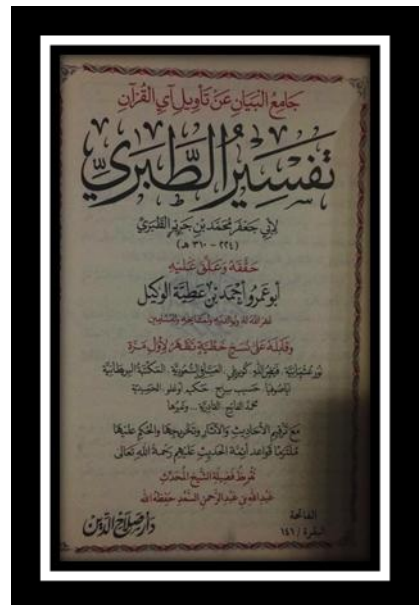 جَامِعُ البَيَانِ عَنْ تَأْوِيلِ آيِ القُرْآنِ
تَفْسِيرُ الطَّبَرِيِّ
لِأَبِي جَعْفَرٍ مُحَمَّدِ بْنِ جَرِيرٍ الطَّبَرِيِّ
(٢٢٤ - ٣١٠ هـ)
حَقَّقَهُ وَعَلَّقَ عَلَيْهِ
أبُو عَمْرٍو أَحْمَدُ بْنُ عَطِيَّةَ الوَكِيل
غفر الله له ولوالديه ولمشايخه وللمسلمين
وَقَابَلَهُ عَلَى نُسَخٍ خَطِّيَّةٍ تَظْهَرُ لِأَوَّلِ مَرَّةٍ
نور عثمانية، فيض الله، كوبريلي، السعودية، المكتبة البريطانية
محمد الفاتح، القادرية... وغيرها
مَعَ تَرْقِيمِ الأَحَادِيثِ وَالآثَارِ وَتَخْرِيجِهَا وَالحُكْمِ عَلَيْهَا
مُلْتَزِمًا قَوَاعِدَ أَئِمَّةِ الحَدِيثِ عَلَيْهِمْ رَحْمَةُ اللهِ تَعَالَى
تَقْرِيظُ فَضِيلَةِ الشَّيْخِ المُحَدِّثِ
عَبْدِ اللهِ بْنِ عَبْدِ الرَّحْمَنِ السَّعْدِ حَفِظَهُ اللهُ
الفاتحة
البقرة / ١٤١
دَارُ صَلَاحِ الدِّين